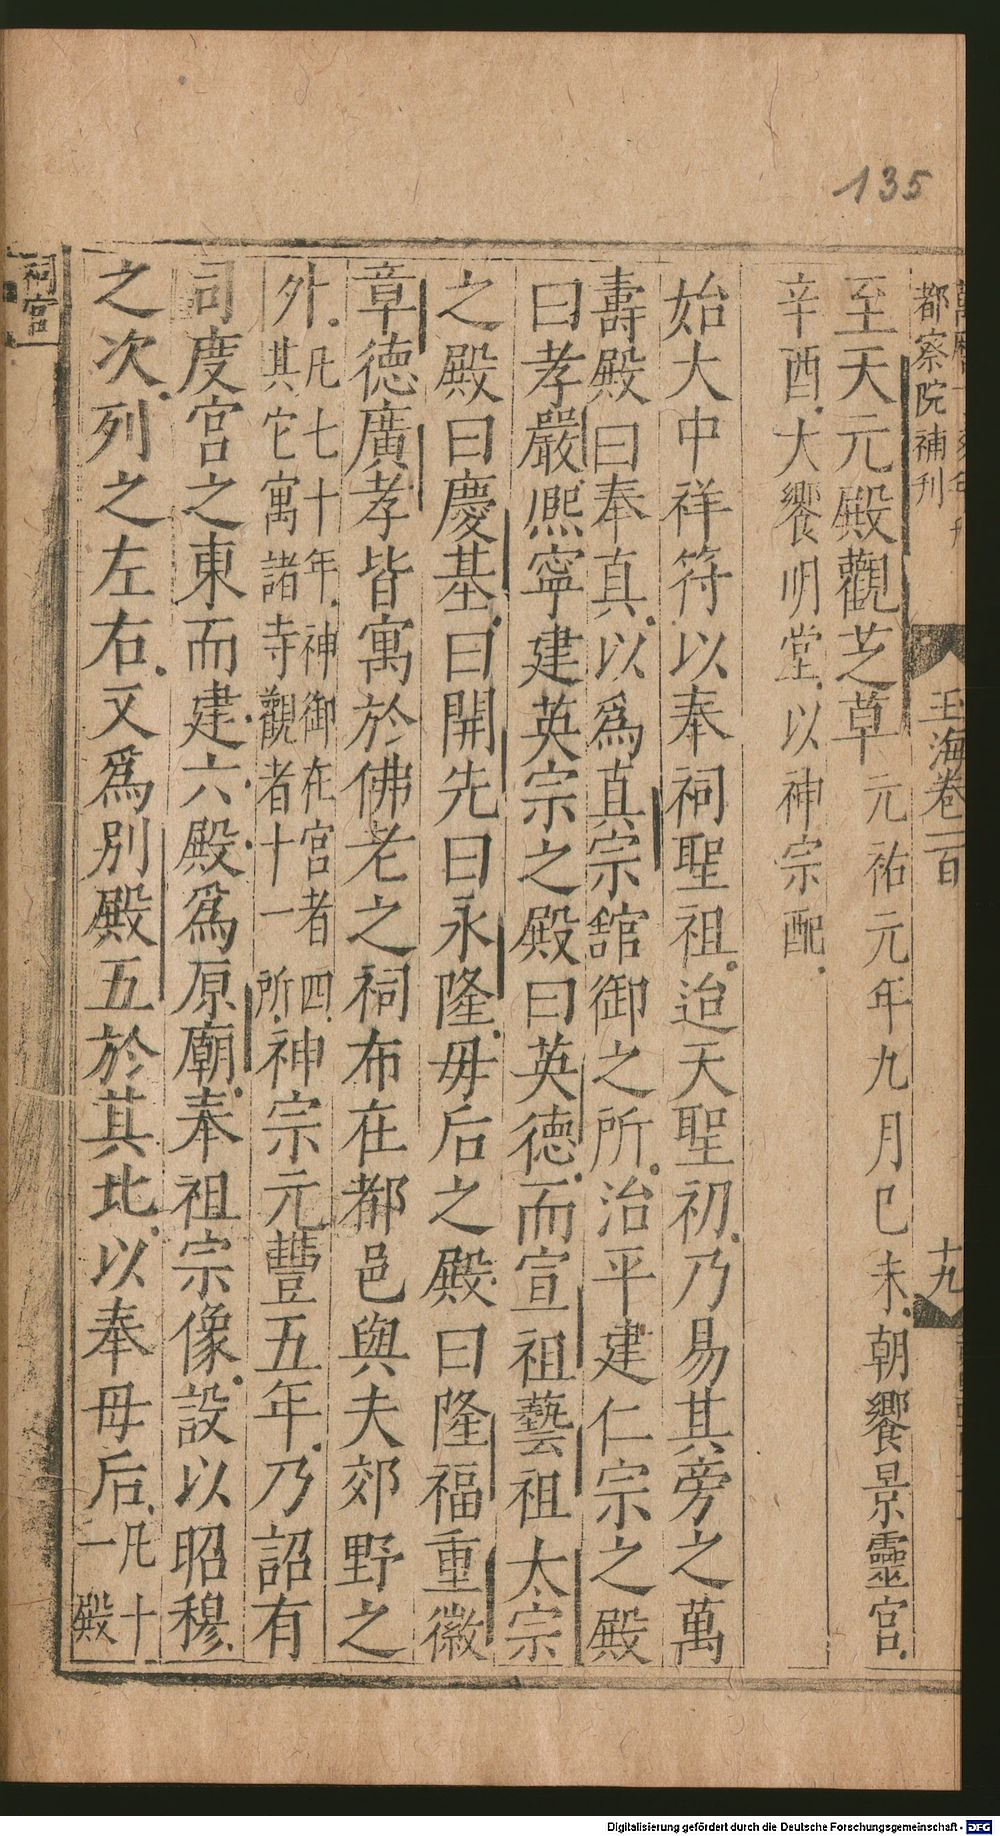 135
都察院補刊
玉海卷一百
十九
至天元殿觀芝草元祐元年九月巳未朝饗景靈宮
辛酉大饗明堂以神宗配
始大中祥符以奉祠聖祖迨天聖初乃易其旁之萬
壽殿曰奉真以爲真宗舘御之所治平建仁宗之殿
曰孝嚴熈寧建英宗之殿曰英德而宣祖藝祖太宗
之殿曰慶基曰開先曰永隆毋后之殿曰隆福重徽
章德廣孝皆寓於佛老之祠布在都邑與夫郊野之
外凡七十年神御在宮者四其它寓諸寺觀者十一所神宗元豐五年乃詔有
司度宮之東而建六殿爲原廟奉祖宗像設以昭穆
之次列之左右又爲別殿五於其北以奉毋后凡十一殿
祠宮
Digitalisierung gefördert durch die Deutsche Forschungsgemeinschaft - DFG